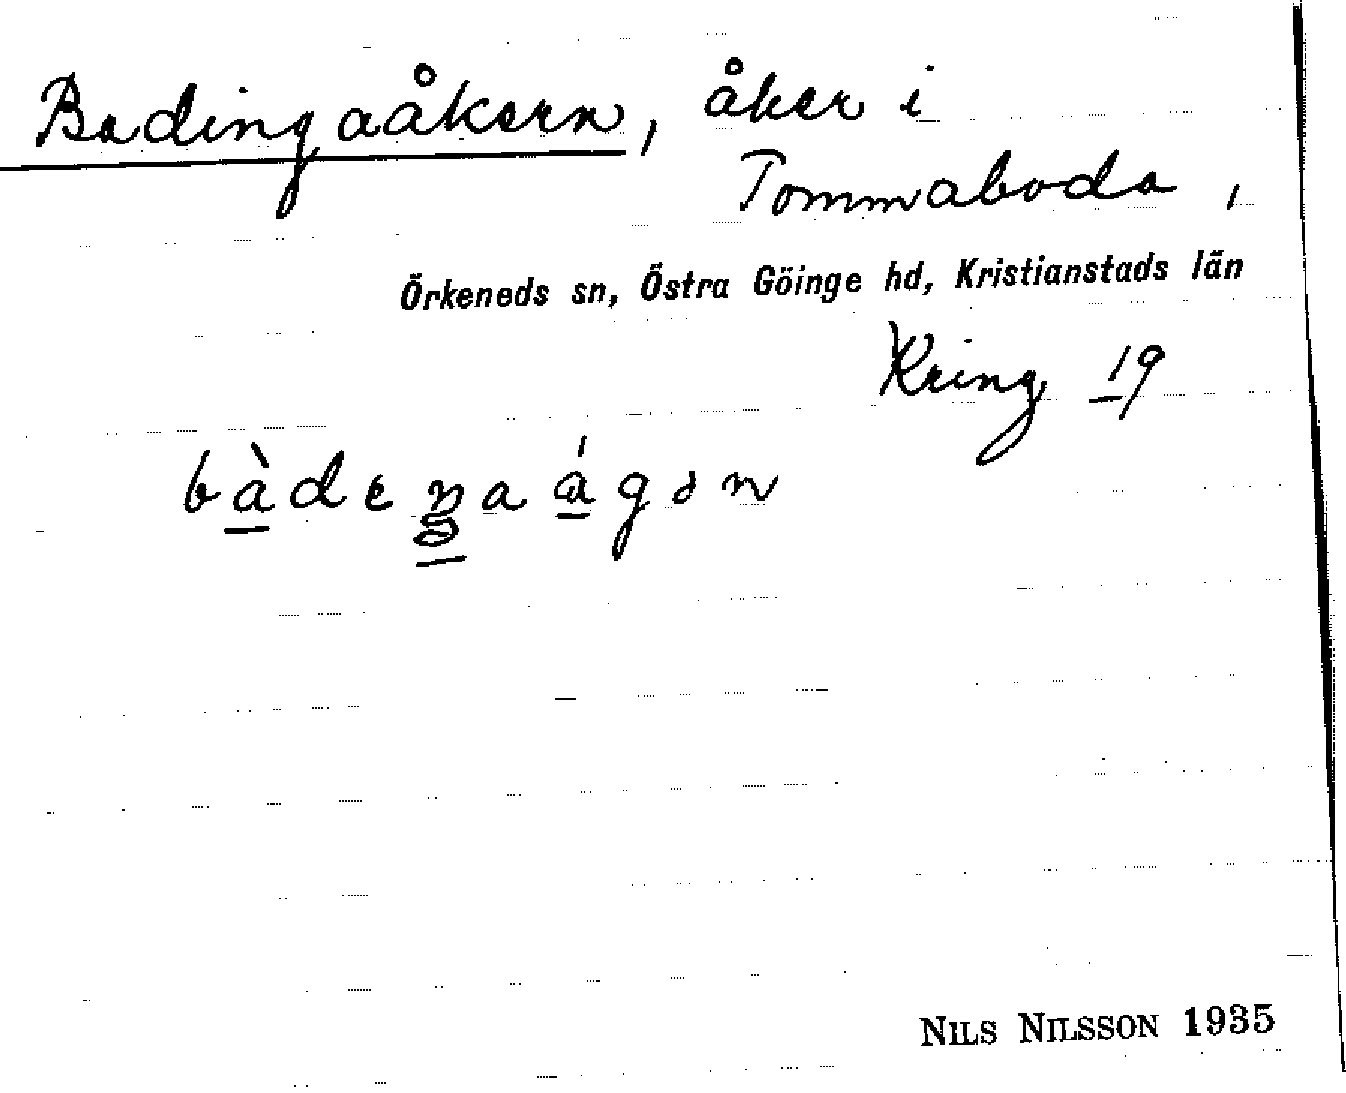 Badingaåkern, åker i
Tommaboda,
Örkeneds sn, Östra Göinge hd, Kristianstads län
Kring 19
NILS NILSSON 1935